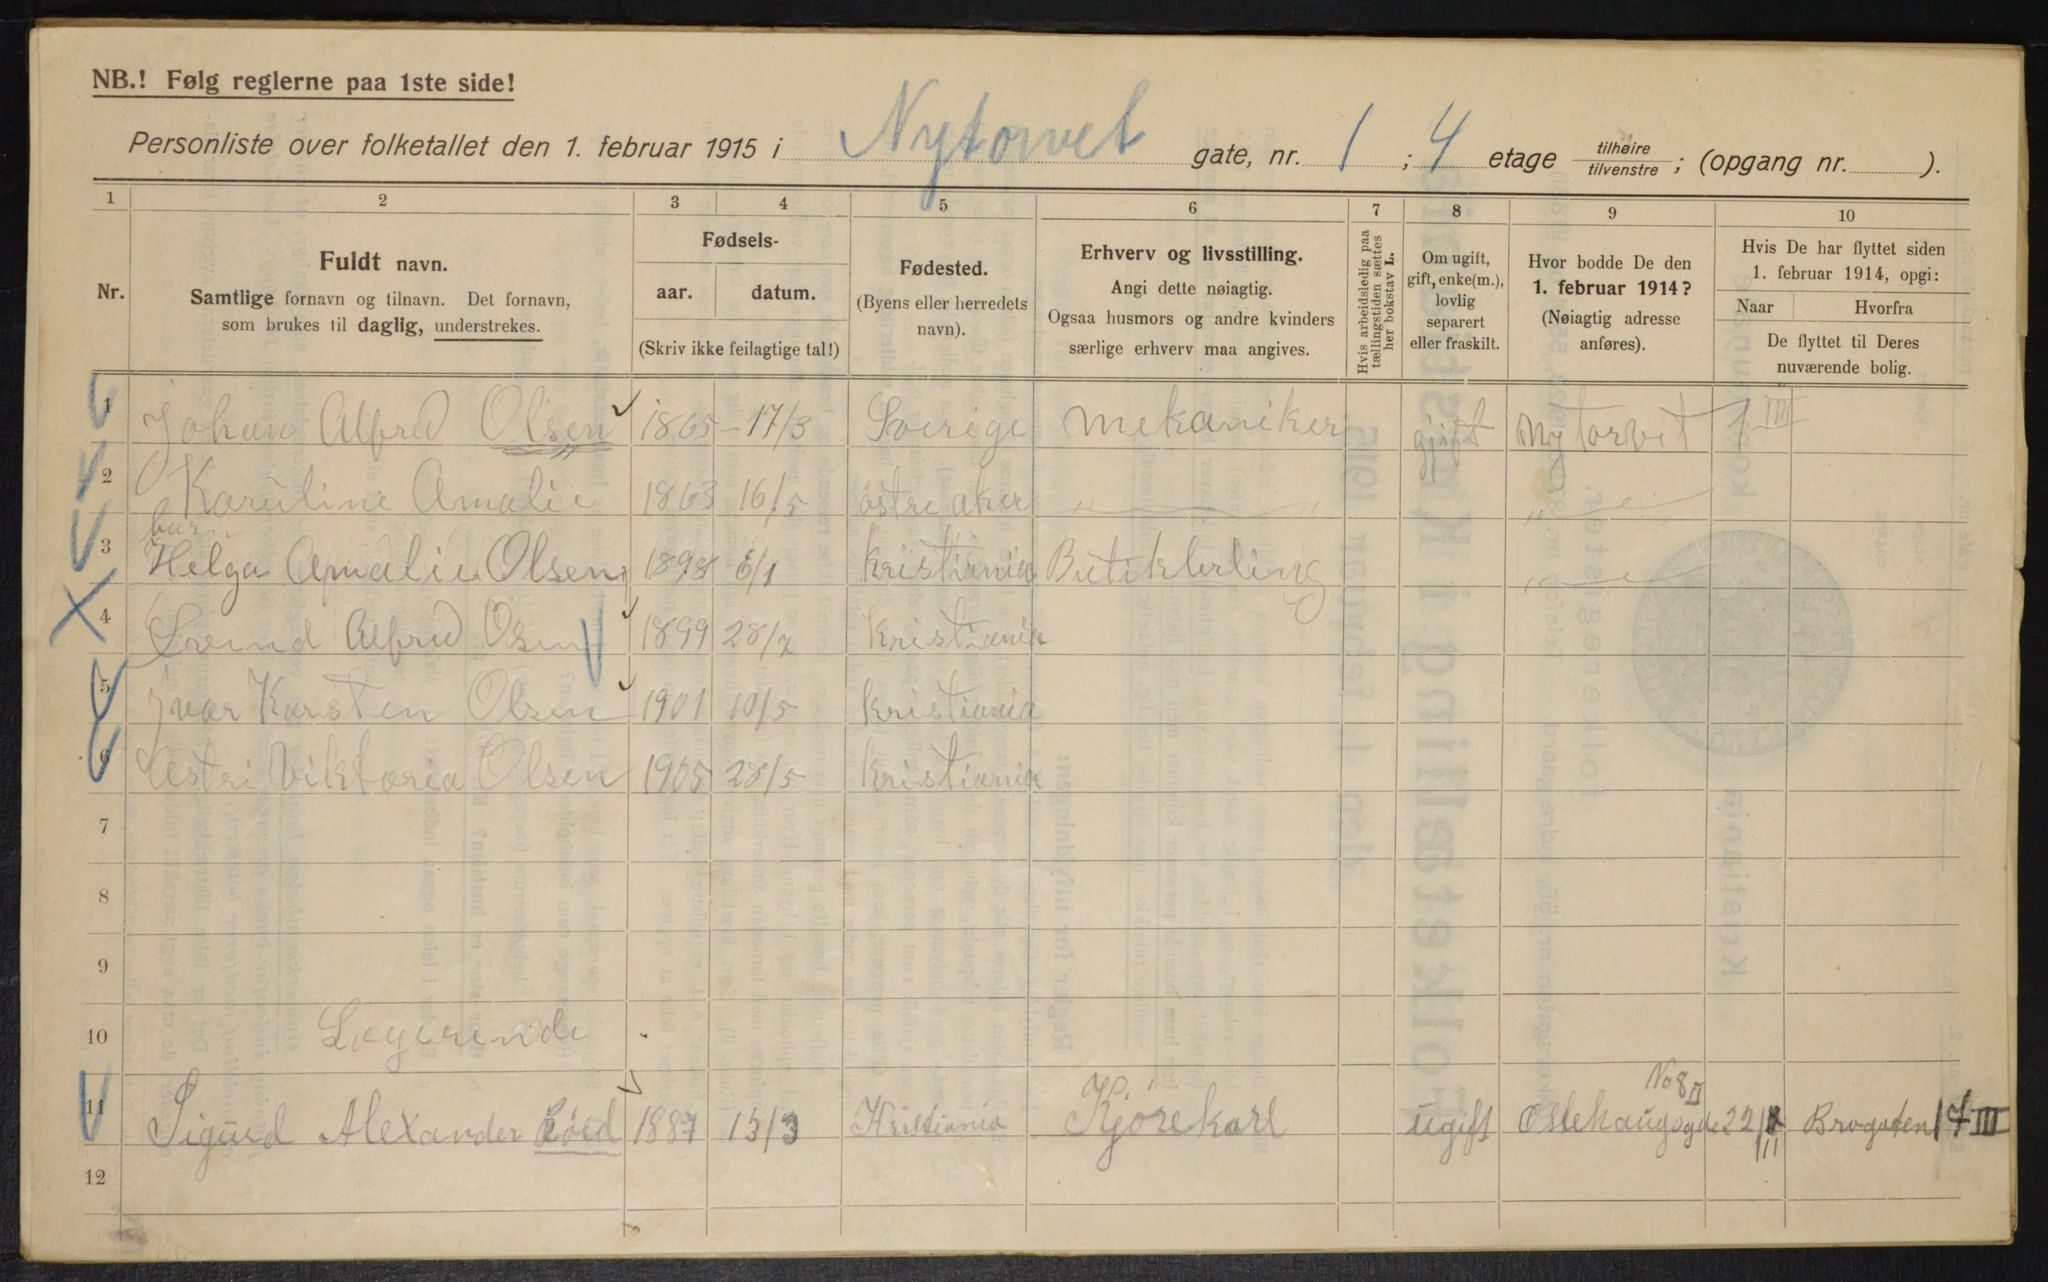 NB.! Følg reglerne paa 1ste side!
Personliste over folketallet den 1. februar 1915 i Nytorvet gate, nr. 1 ; 4 etage tilhøire tilvenstre ; (opgang nr. ).
1 2 3 4 5 6 7 8 9 10
Nr.
Fuldt navn.
Samtlige fornavn og tilnavn. Det fornavn,
som brukes til daglig, understrekes.
Fødsels-
aar. datum.
(Skriv ikke feilagtige tal!)
Fødested.
(Byens eller herredets
navn).
Erhverv og livsstilling.
Angi dette nøiagtig.
Ogsaa husmors og andre kvinders
særlige erhverv maa angives.
Hvis arbeidsledig paa
tællingstiden sættes
her bokstav L.
Om ugift,
gift, enke(m.),
lovlig
separert
eller fraskilt.
Hvor bodde De den
1. februar 1914?
(Nøiagtig adresse
anføres).
Hvis De har flyttet siden
1. februar 1914, opgi:
Naar Hvorfra
De flyttet til Deres
nuværende bolig.
1 Johan Alfred Olsen 1865 17/3 Sverige Mekaniker gift Nytorvet 1 III
2 Karoline Amalie 1863 16/5 østre aker " " "
barn
3 Helga Amalie Olsen 1898 6/1 Kristiania Butiklerling "
4 Svend Alfred Osen 1899 28/7 Kristiania
5 Ivar Karsten Olsen 1901 10/5 Kristiania
6 Astri Viktoria Olsen 1905 28/5 Kristiania
7
8
9
10 Logerende
No 8 II
11 Sigurd Alexander 1887 13/3 Kristiania Kjørekarl ugift 22/ III Brogaten 17 III
12